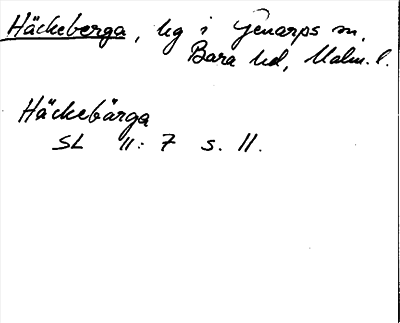 Häckeberga, hg i Genarps sn,
Bara hd, Malm. l.
Häckebärga
SL 11:7 s. 11.